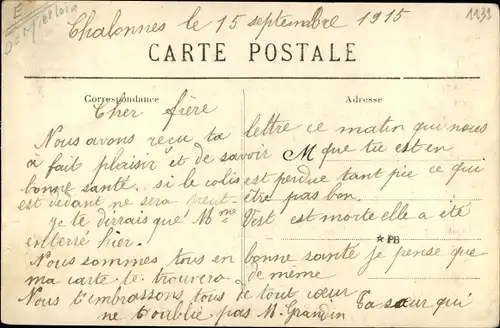 Chalonnes le 15 septembre 1915
1132
CARTE POSTALE
Correspondance
Adresse
Cher frère
Nous avons reçu ta lettre ce matin qui nous
à fait plaisir et de savoir M que tu est en
bonne santé. si le colis est perdue tant pie ce qui
est dedant ne sera peut-être pas bon.
je te dirrais que Mme Vest est morte elle a été
enterré hier.
PB
Nous sommes tous en bonne santé je pense que
ma carte te trouvera de même
Nous t'embrassons tous de tout cœur
Ta sœur qui
ne t'oublie pas M. Grandin